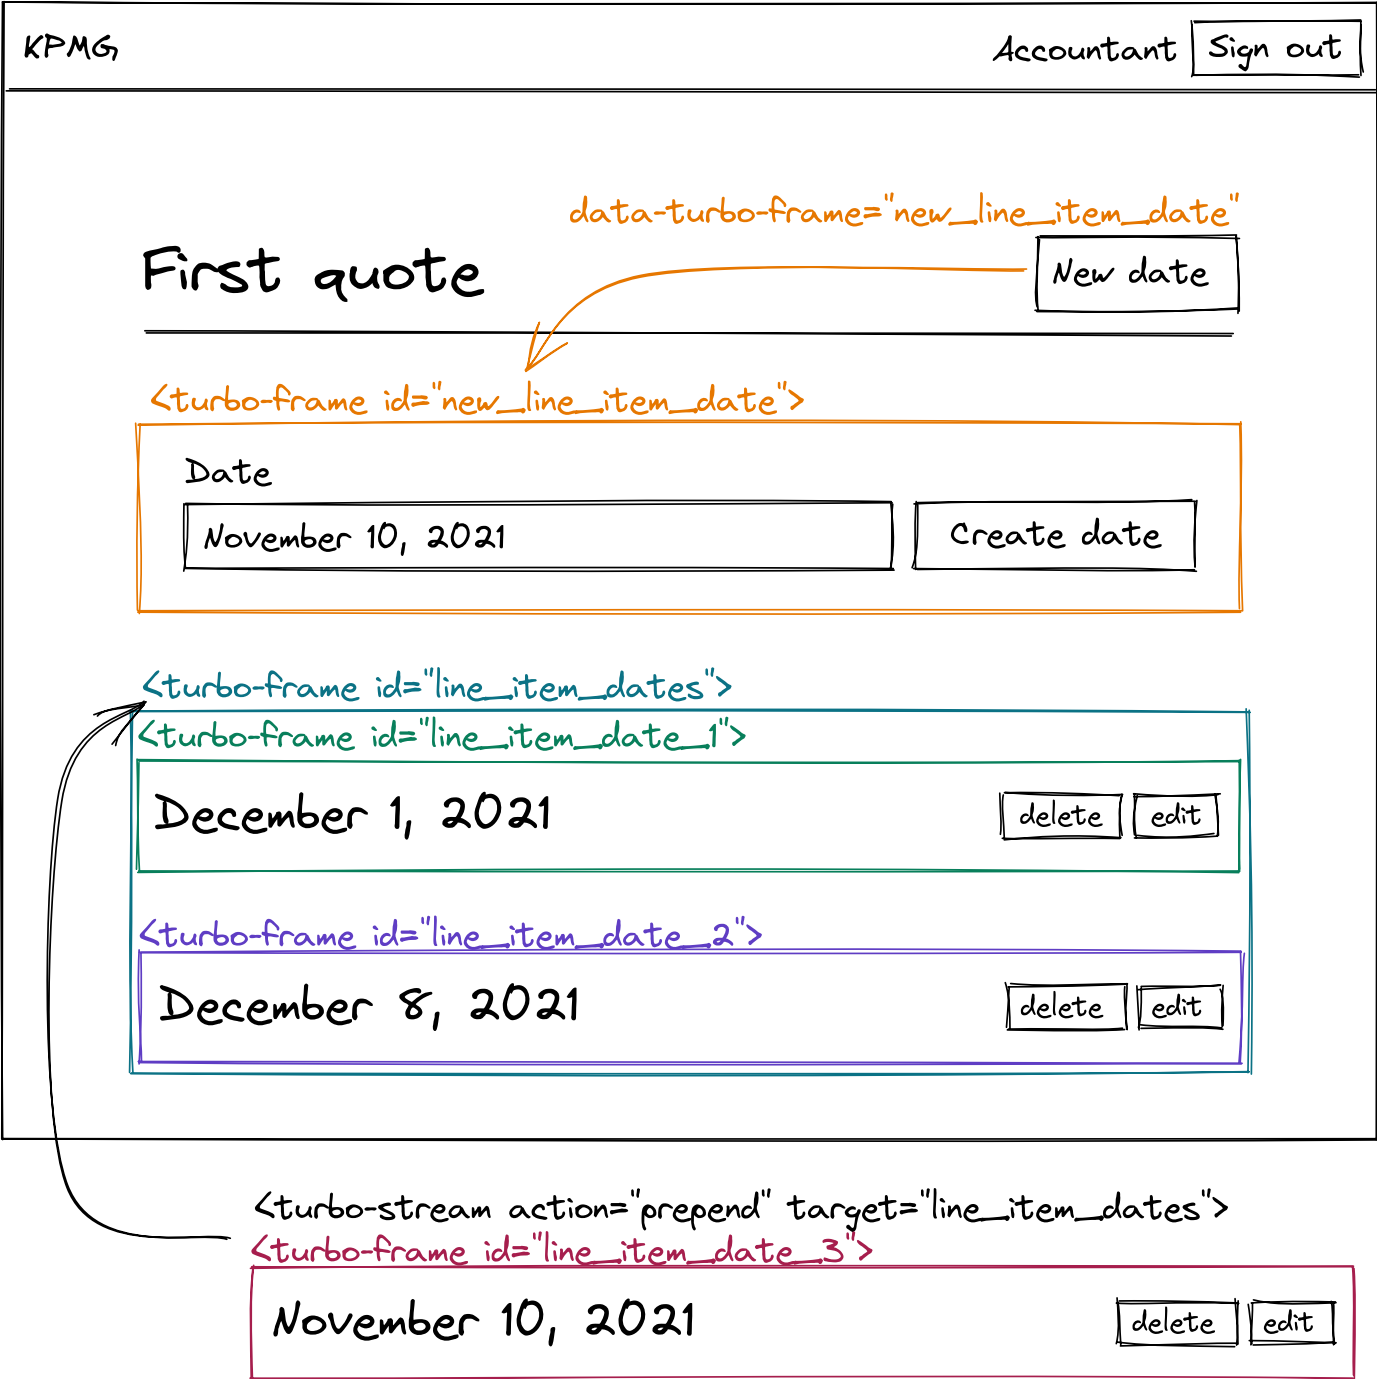 KPMG
Accountant
Sign out
data-turbo-frame="new_line_item_date"
First quote
New date
<turbo-frame id="new_line_item_date">
Date
November 10, 2021
Create date
<turbo-frame id="line_item_dates">
<turbo-frame id="line_item_date_1">
December 1, 2021
delete
edit
<turbo-frame id="line_item_date_2">
December 8, 2021
delete
edit
<turbo-stream action="prepend" target="line_item_dates">
<turbo-frame id="line_item_date_3">
November 10, 2021
delete
edit